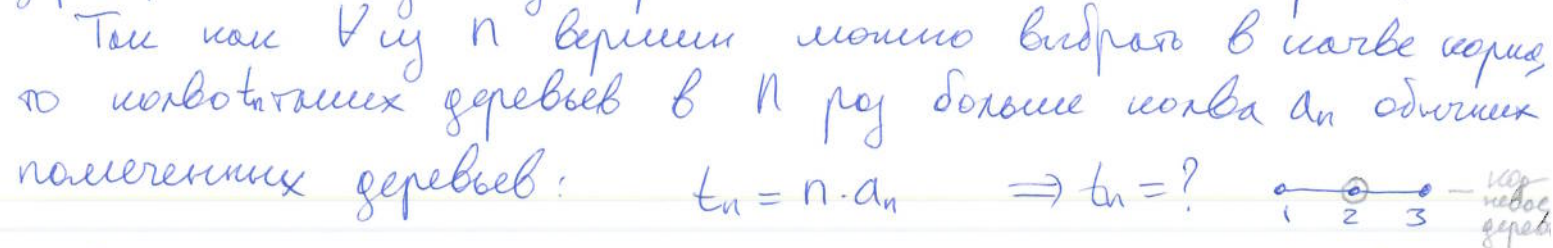 Так как ∀ из n вершин можно выбрать в кач-ве корня,
то кол-во tₙ таких деревьев в n раз больше кол-ва aₙ обычных
помеченных деревьев: tₙ = n·aₙ ⟹ tₙ = ? 1 2 3 — кор-
невое
дерево